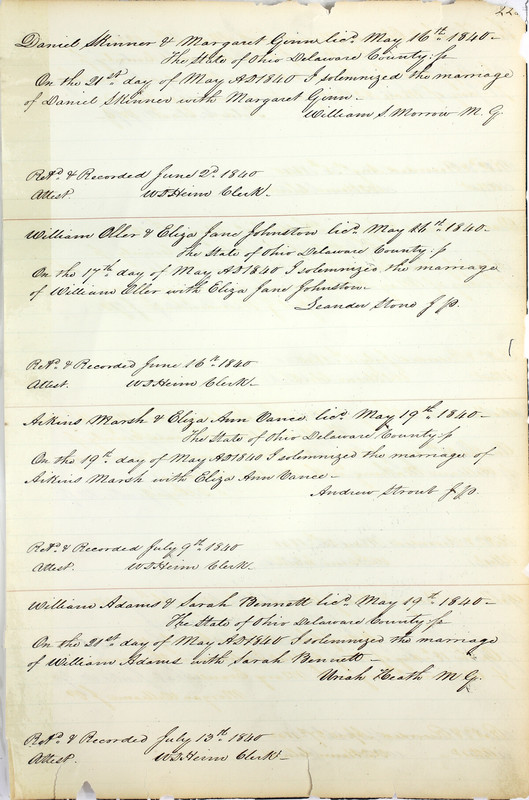 22
Daniel Skinner & Margaret Ginn licd. May 16th. 1840-
The State of Ohio Delaware County: ss
On the 21st. day of May AD1840 I solemnized the marriage
of Daniel Skinner with Margaret Ginn-
William S. Morrow M. G.
Retd. & Recorded June 2d. 1840
Attest. W D Heim Clerk-
William Oller & Eliza Jane Johnston licd. May 16th. 1840-
The State of Ohio Delaware County: ss
On the 17th. day of May AD1840 I solemnized the marriage
of William Oller with Eliza Jane Johnston-
Leander Stone J P.
Retd. & Recorded June 16th. 1840
Attest. W D Heim Clerk-
Aikins Marsh & Eliza Ann Vance licd. May 19th. 1840-
The State of Ohio Delaware County ss
On the 19th. day of May AD1840 I solemnized the marriage of
Aikins Marsh with Eliza Ann Vance-
Andrew Strout J P.
Retd. & Recorded July 9th. 1840
Attest. W D Heim Clerk-
William Adams & Sarah Bennett licd. May 19th. 1840-
The State of Ohio Delaware County: ss
On the 21st. day of May AD1840 I solemnized the marriage
of William Adams with Sarah Bennett-
Uriah Heath M. G.
Retd. & Recorded July 13th. 1840
Attest. W D Heim Clerk-